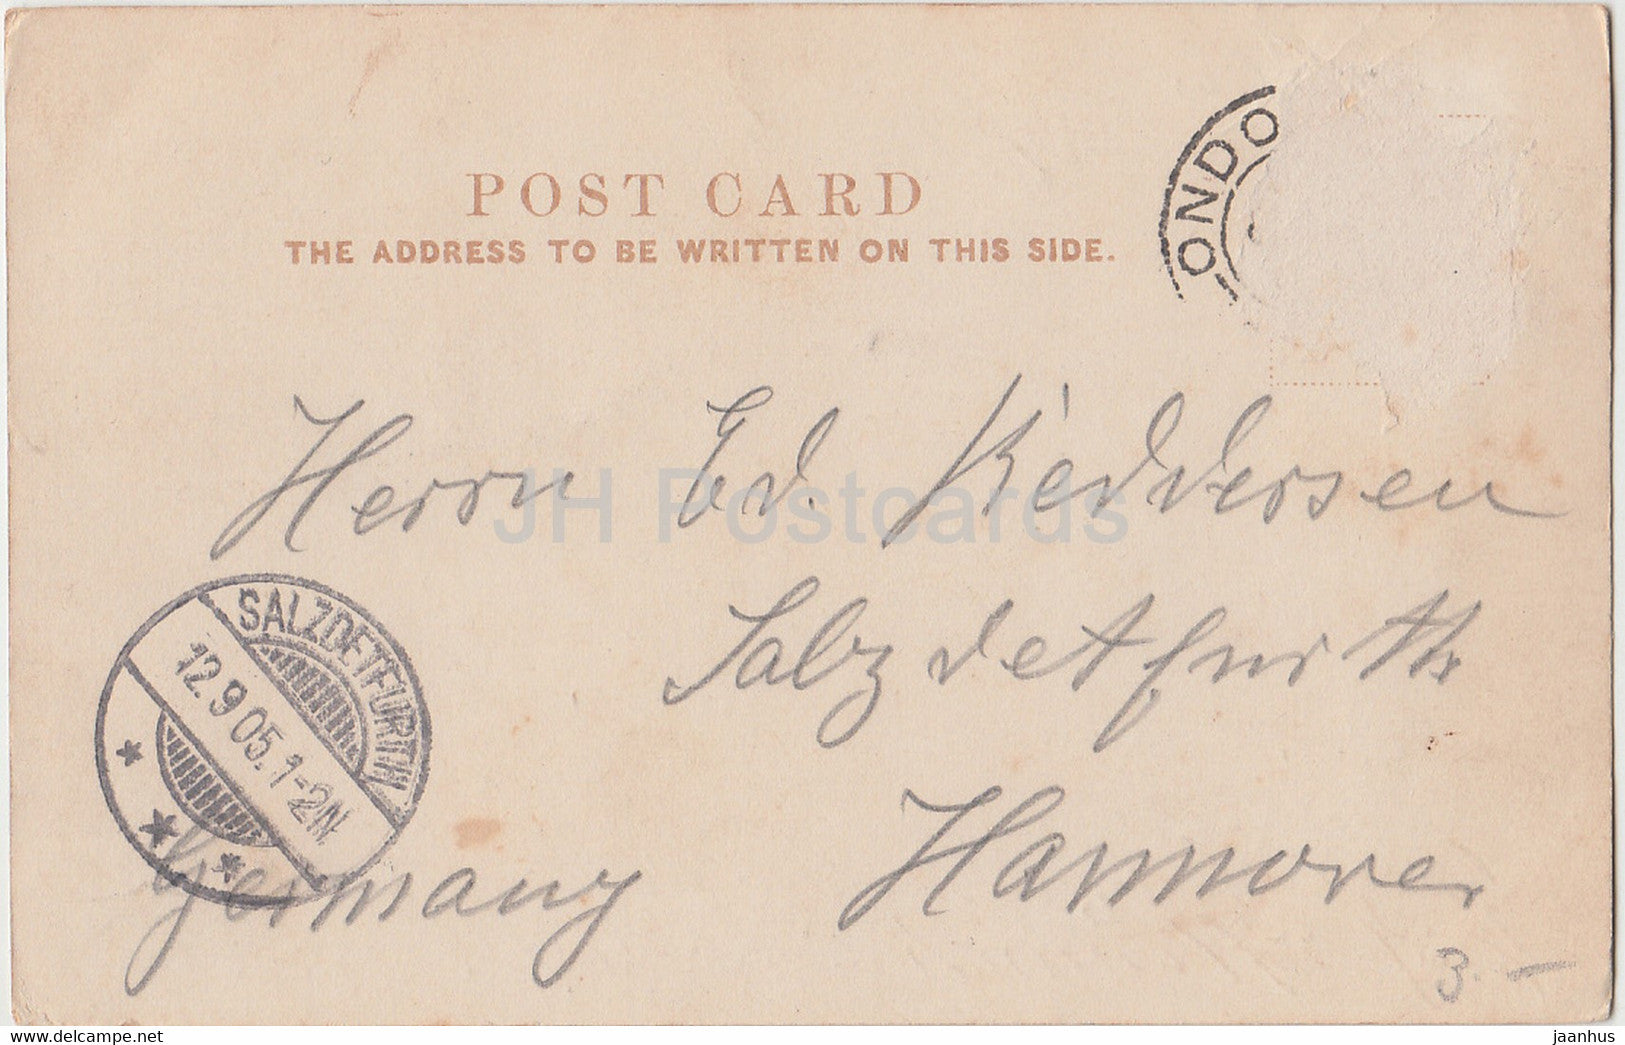 POST CARD
THE ADDRESS TO BE WRITTEN ON THIS SIDE.
ONDO
Herrn Ed. Reddersen
Salzdetfurth
Hannover
Germany
SALZDETFURTH
12.9 05.1-2N.
JH Postcards
3.-
jaanhus